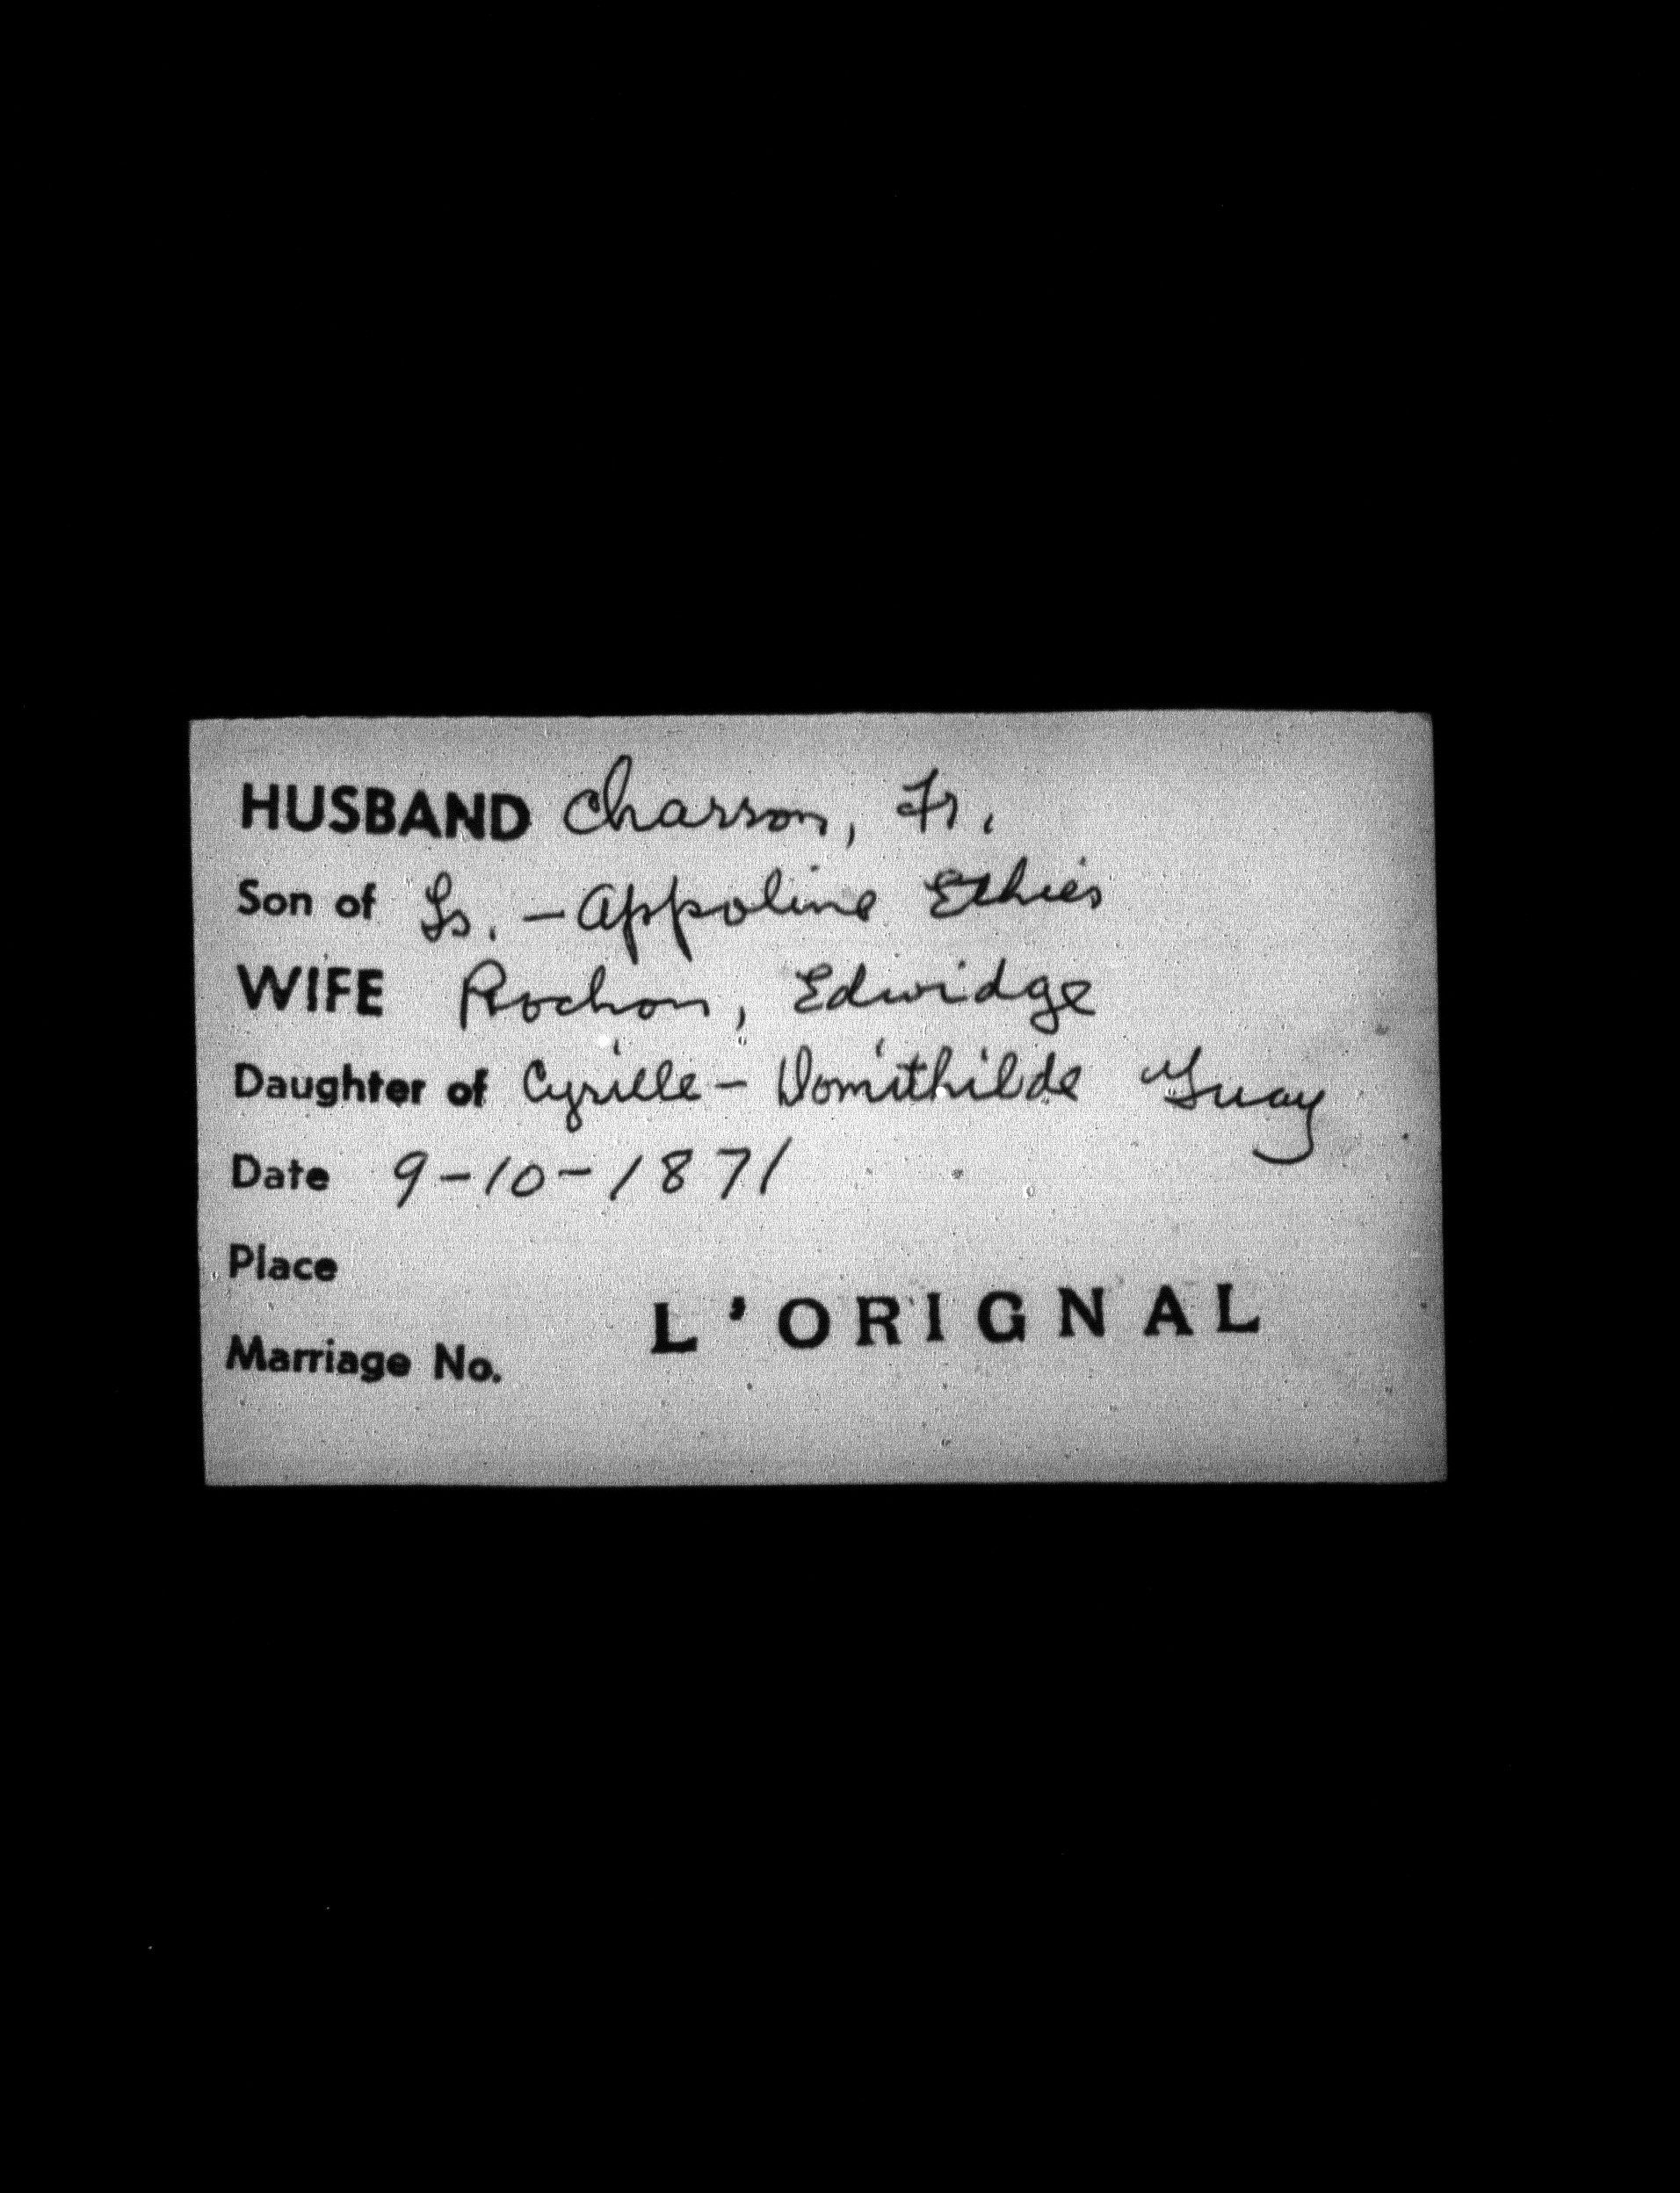 HUSBAND Charron, Fr.
Son of Ls. - Appoline Ethier
WIFE Rochon, Edwidge
Daughter of Cyrille - Domithilde Guay
Date 9-10-1871
Place
L'ORIGNAL
Marriage No.